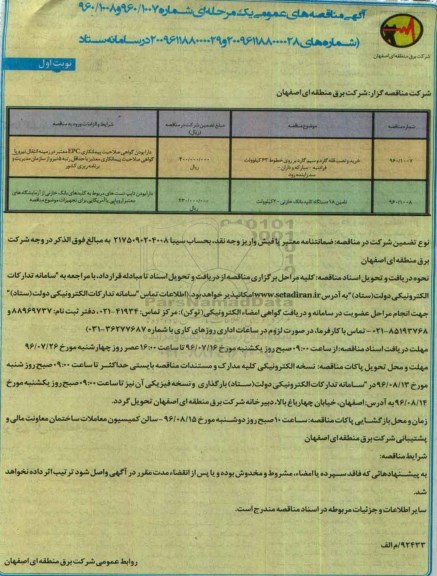 آگهی مناقصه های عمومی یک مرحله ای شماره ۹۶۰/۱۰۰۷ و ۹۶۰/۱۰۰۸
(شماره های ۲۰۰۹۶۱۱۸۸۰۰۰۰۲۸ و ۲۰۰۹۶۱۱۸۸۰۰۰۰۲۹ در سامانه ستاد)
شرکت برق منطقه ای اصفهان
نوبت اول
شرکت مناقصه گزار: شرکت برق منطقه ای اصفهان
شماره مناقصه
موضوع مناقصه
مبلغ تضمین شرکت در مناقصه (ریال)
شرایط و الزامات ورود به مناقصه
۹۶۰/۱۰۰۷
خرید و نصب یراق گارد و سیم گارد بر روی خطوط ۶۳ کیلوولت
ریال
دارا بودن گواهی صلاحیت پیمانکاری EPC معتبر در زمینه انتقال نیرو یا
گواهی صلاحیت پیمانکاری معتبر با حداقل رتبه ۵ نیرو از سازمان مدیریت و
برنامه ریزی کشور
۹۶۰/۱۰۰۸
تامین ۱۸ دستگاه کلید بانک خازنی ۲۰ کیلوولت
ریال
دارا بودن تایپ تست های مربوط به کلیدهای بانک خازنی از آزمایشگاه های
معتبر اروپایی یا آمریکایی برای تجهیزات موضوع مناقصه
نوع تضمین شرکت در مناقصه: ضمانتنامه معتبر یا فیش واریز وجه نقد، بحساب سیبا ۲۱۷۵۰۹۰۲۰۴۰۰۸ به مبالغ فوق الذکر در وجه شرکت
برق منطقه ای اصفهان
نحوه دریافت و تحویل اسناد مناقصه: کلیه مراحل برگزاری مناقصه از دریافت و تحویل اسناد تا مبادله قرارداد، با مراجعه به "سامانه تدارکات
الکترونیکی دولت (ستاد)" به آدرس www.setadiran.ir امکانپذیر خواهد بود. (اطلاعات تماس "سامانه تدارکات الکترونیکی دولت (ستاد)"
جهت انجام مراحل عضویت در سامانه و دریافت گواهی امضاء الکترونیکی (توکن): مرکز تماس: ۴۱۹۳۴-۰۲۱، دفتر ثبت نام: ۸۸۹۶۹۷۳۷ و
۸۵۱۹۳۷۶۸-۰۲۱) – تماس با کارفرما، در صورت لزوم در ساعات اداری روزهای کاری با شماره ۳۶۲۷۷۶۸۷-۰۳۱
مهلت دریافت اسناد مناقصه: از ساعت ۰۹:۰۰ صبح روز یکشنبه مورخ ۹۶/۰۷/۱۶ تا ساعت ۱۶:۰۰ عصر روز چهارشنبه مورخ ۹۶/۰۷/۲۶
مهلت و محل تحویل پاکات مناقصه: نسخه الکترونیکی کلیه مدارک و مستندات مناقصه بایستی حداکثر تا ساعت ۰۹:۰۰ صبح روز شنبه
مورخ ۹۶/۰۸/۱۳ در "سامانه تدارکات الکترونیکی دولت (ستاد) بارگذاری و نسخه فیزیکی آن نیز تا ساعت ۰۹:۰۰ صبح روز یکشنبه مورخ
۹۶/۰۸/۱۴ به آدرس: اصفهان، خیابان چهارباغ بالا، دبیرخانه شرکت برق منطقه ای اصفهان تحویل گردد.
زمان و محل بازگشایی پاکات مناقصه: ساعت ۱۰ صبح روز دوشنبه مورخ ۹۶/۰۸/۱۵ - سالن کمیسیون معاملات ساختمان معاونت مالی و
پشتیبانی شرکت برق منطقه ای اصفهان
شرایط مناقصه:
به پیشنهادهائی که فاقد سپرده یا امضاء، مشروط و مخدوش بوده و یا پس از انقضاء مدت مقرر در آگهی واصل شود ترتیب اثر داده نخواهد
شد.
سایر اطلاعات و جزئیات مربوطه در اسناد مناقصه مندرج است.
۹۲۴۳۳/م الف
روابط عمومی شرکت برق منطقه ای اصفهان